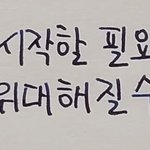 시작할 필요
위대해질 수